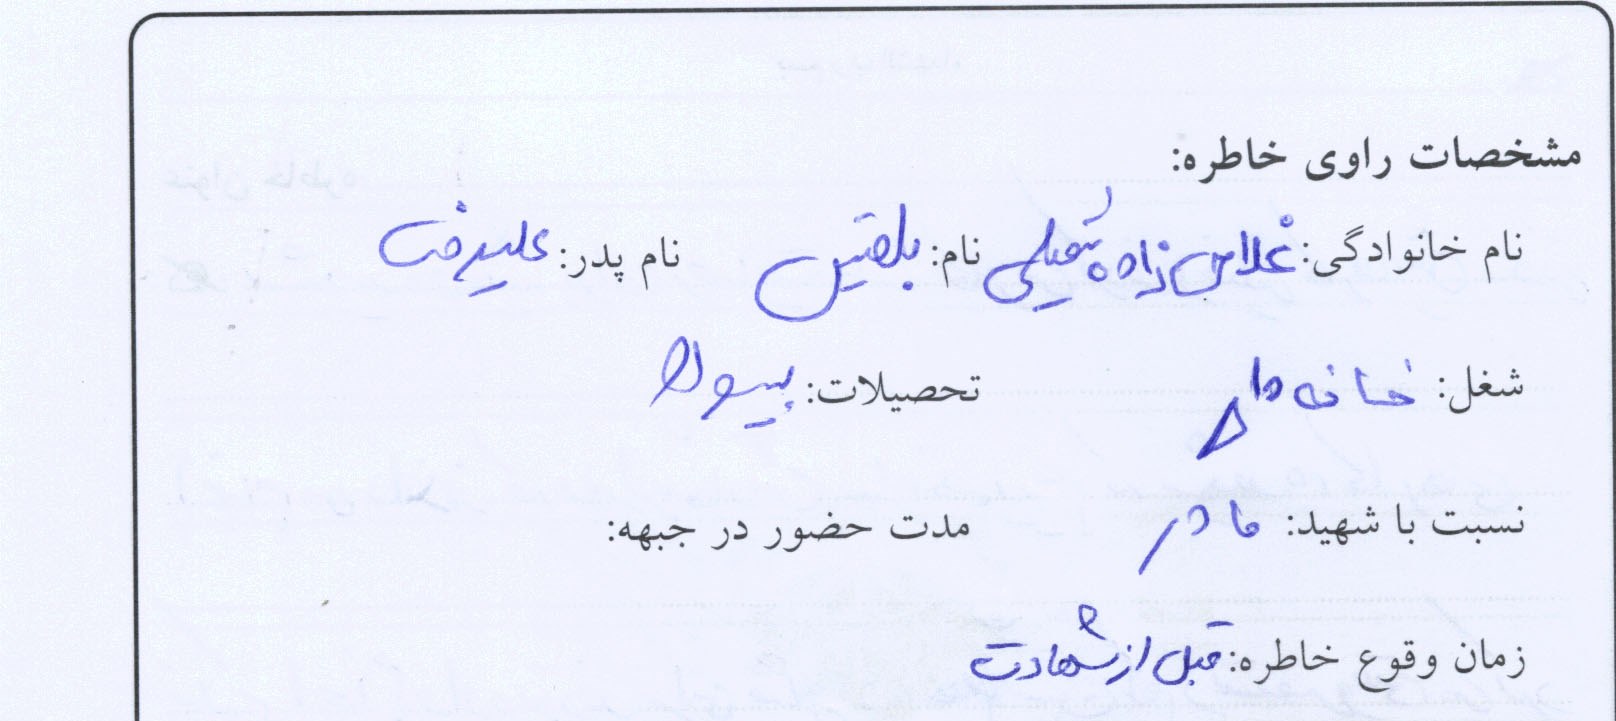 مشخصات راوی خاطره:
نام خانوادگی: غلامی زاده نام: بلقیس نام پدر: علیرضا
شغل: خانه دار تحصیلات: بیسواد
نسبت با شهید: مادر مدت حضور در جبهه:
زمان وقوع خاطره: قبل از شهادت